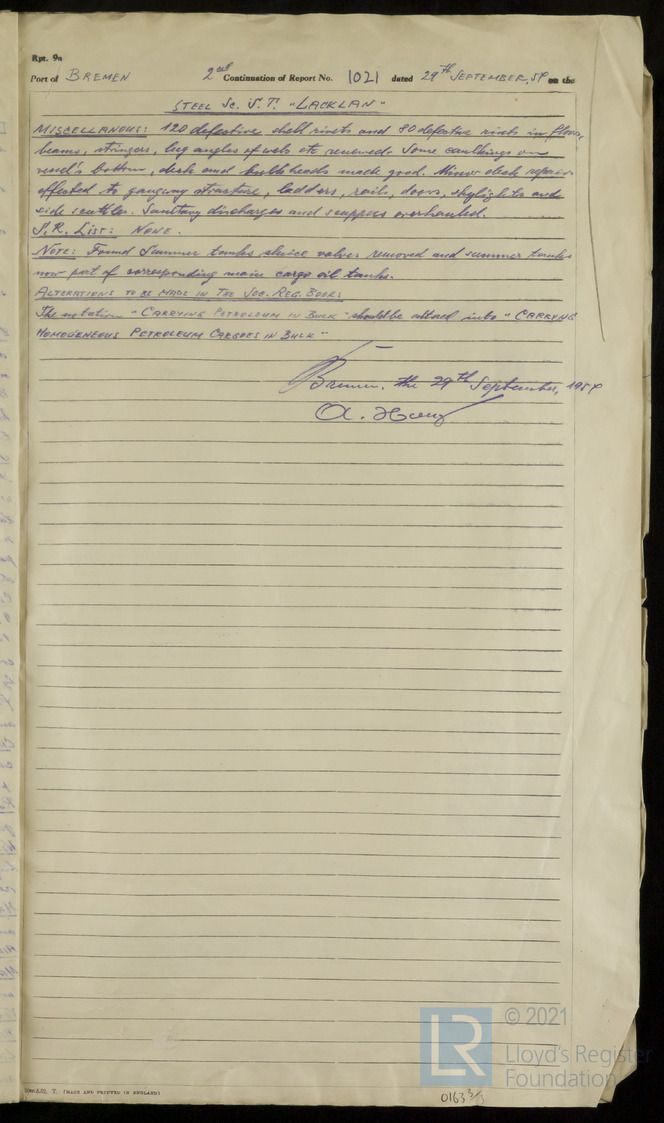 Rpt. 9a
Port of BREMEN 2nd Continuation of Report No. 1021 dated 29th SEPTEMBER, 54 on the
STEEL Sc. S.T. "LACKLAN"
MISCELLANOUS: 120 defective shell rivets and 80 defective rivets in floors,
beams, stringers, lug angles of webs etc renewed. Some caulkings on
vessel's bottom, deck and bulkheads made good. Minor deck repairs
effected to gangway structure, ladders, rails, doors, skylights and
side scuttles. Sanitary discharges and scuppers overhauled.
S.R. LIST: NONE.
NOTE: Found Summer tanks sluice valves removed and summer tanks
now part of corresponding main cargo oil tanks.
ALTERATIONS TO BE MADE IN THE SOC. REG. BOOK:
The notation "CARRYING PETROLEUM IN BULK" should be altered into "CARRYING
HOMOGENEOUS PETROLEUM CARGOES IN BULK"
Bremen, the 29th September, 1954
A.
T. (MADE AND PRINTED IN ENGLAND)
LR
© 2021
Lloyd's Register
Foundation
0163 3/3